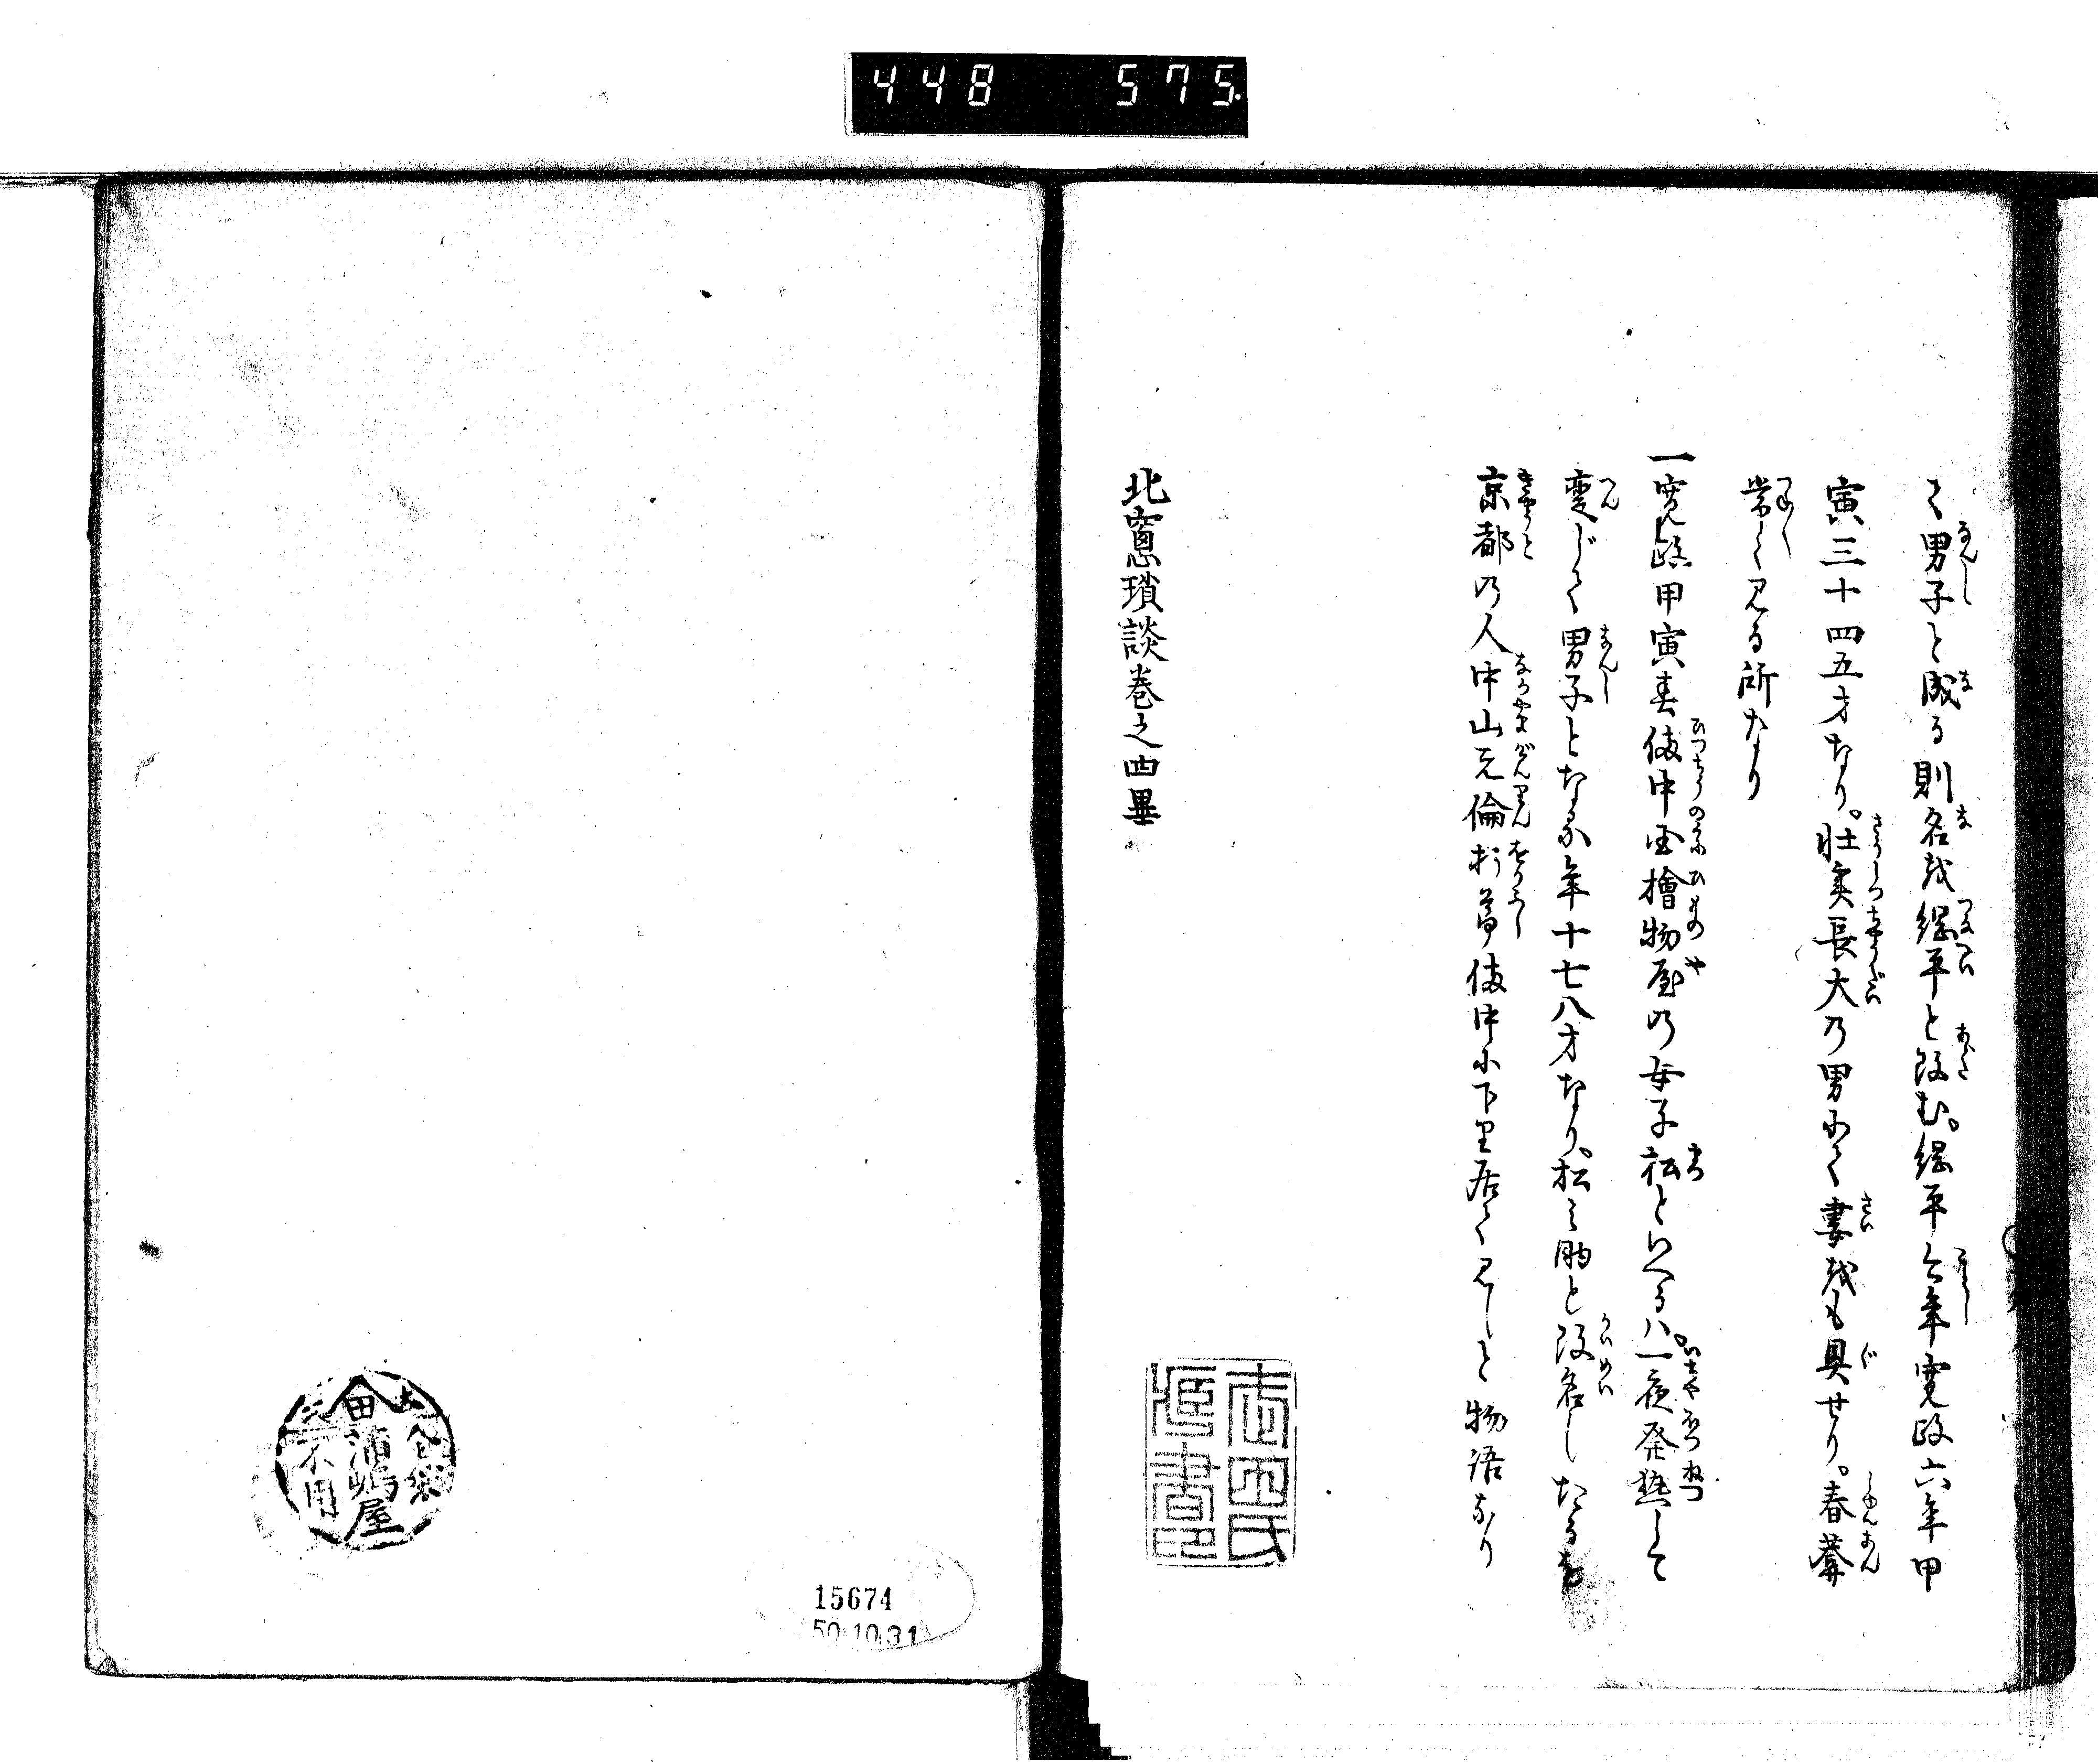 448 575
て男子と成る則名を綱平と改む。綱平今年寛政六年甲
寅三十四五才なり。壮実長大の男にて妻をも具せり。春菴
常々見る所なり
一寛政甲寅春備中国檜物屋の女子松といへるハ一夜発熱して
変じて男子となる年十七八才なり松之助と改名したるを
京都の人中山元倫折節備中に下り居て見しと物語なり
北窻瑣談巻之四畢
志田氏
蔵書印
田
蒲嶋屋
不用
15674
50.10.31